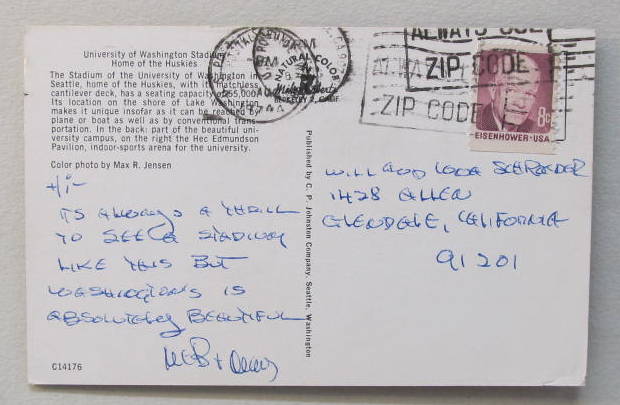 University of Washington Stadium
Home of the Huskies
The Stadium of the University of Washington in
Seattle, home of the Huskies, with its matchless
cantilever deck, has a seating capacity of 55,000.
Its location on the shore of Lake Washington
makes it unique insofar as it can be reached by
plane or boat as well as by conventional trans-
portation. In the back: part of the beautiful uni-
versity campus, on the right the Hec Edmundson
Pavilion, indoor-sports arena for the university.
Color photo by Max R. Jensen
Hi-
ITS ALWAYS A THRILL
TO SEE A STADIUM
LIKE THIS BUT
WASHINGTONS IS
ABSOLUTELY BEAUTIFUL
C14176
Published by C. P. Johnston Company, Seattle, Washington
NATURAL COLOR
PM
ALWAYS USE
ZIP CODE
ZIP CODE
8¢
EISENHOWER·USA
WILL AND LODA SCHRADER
1428 ALLEN
GLENDALE, CALIFORNIA
91201